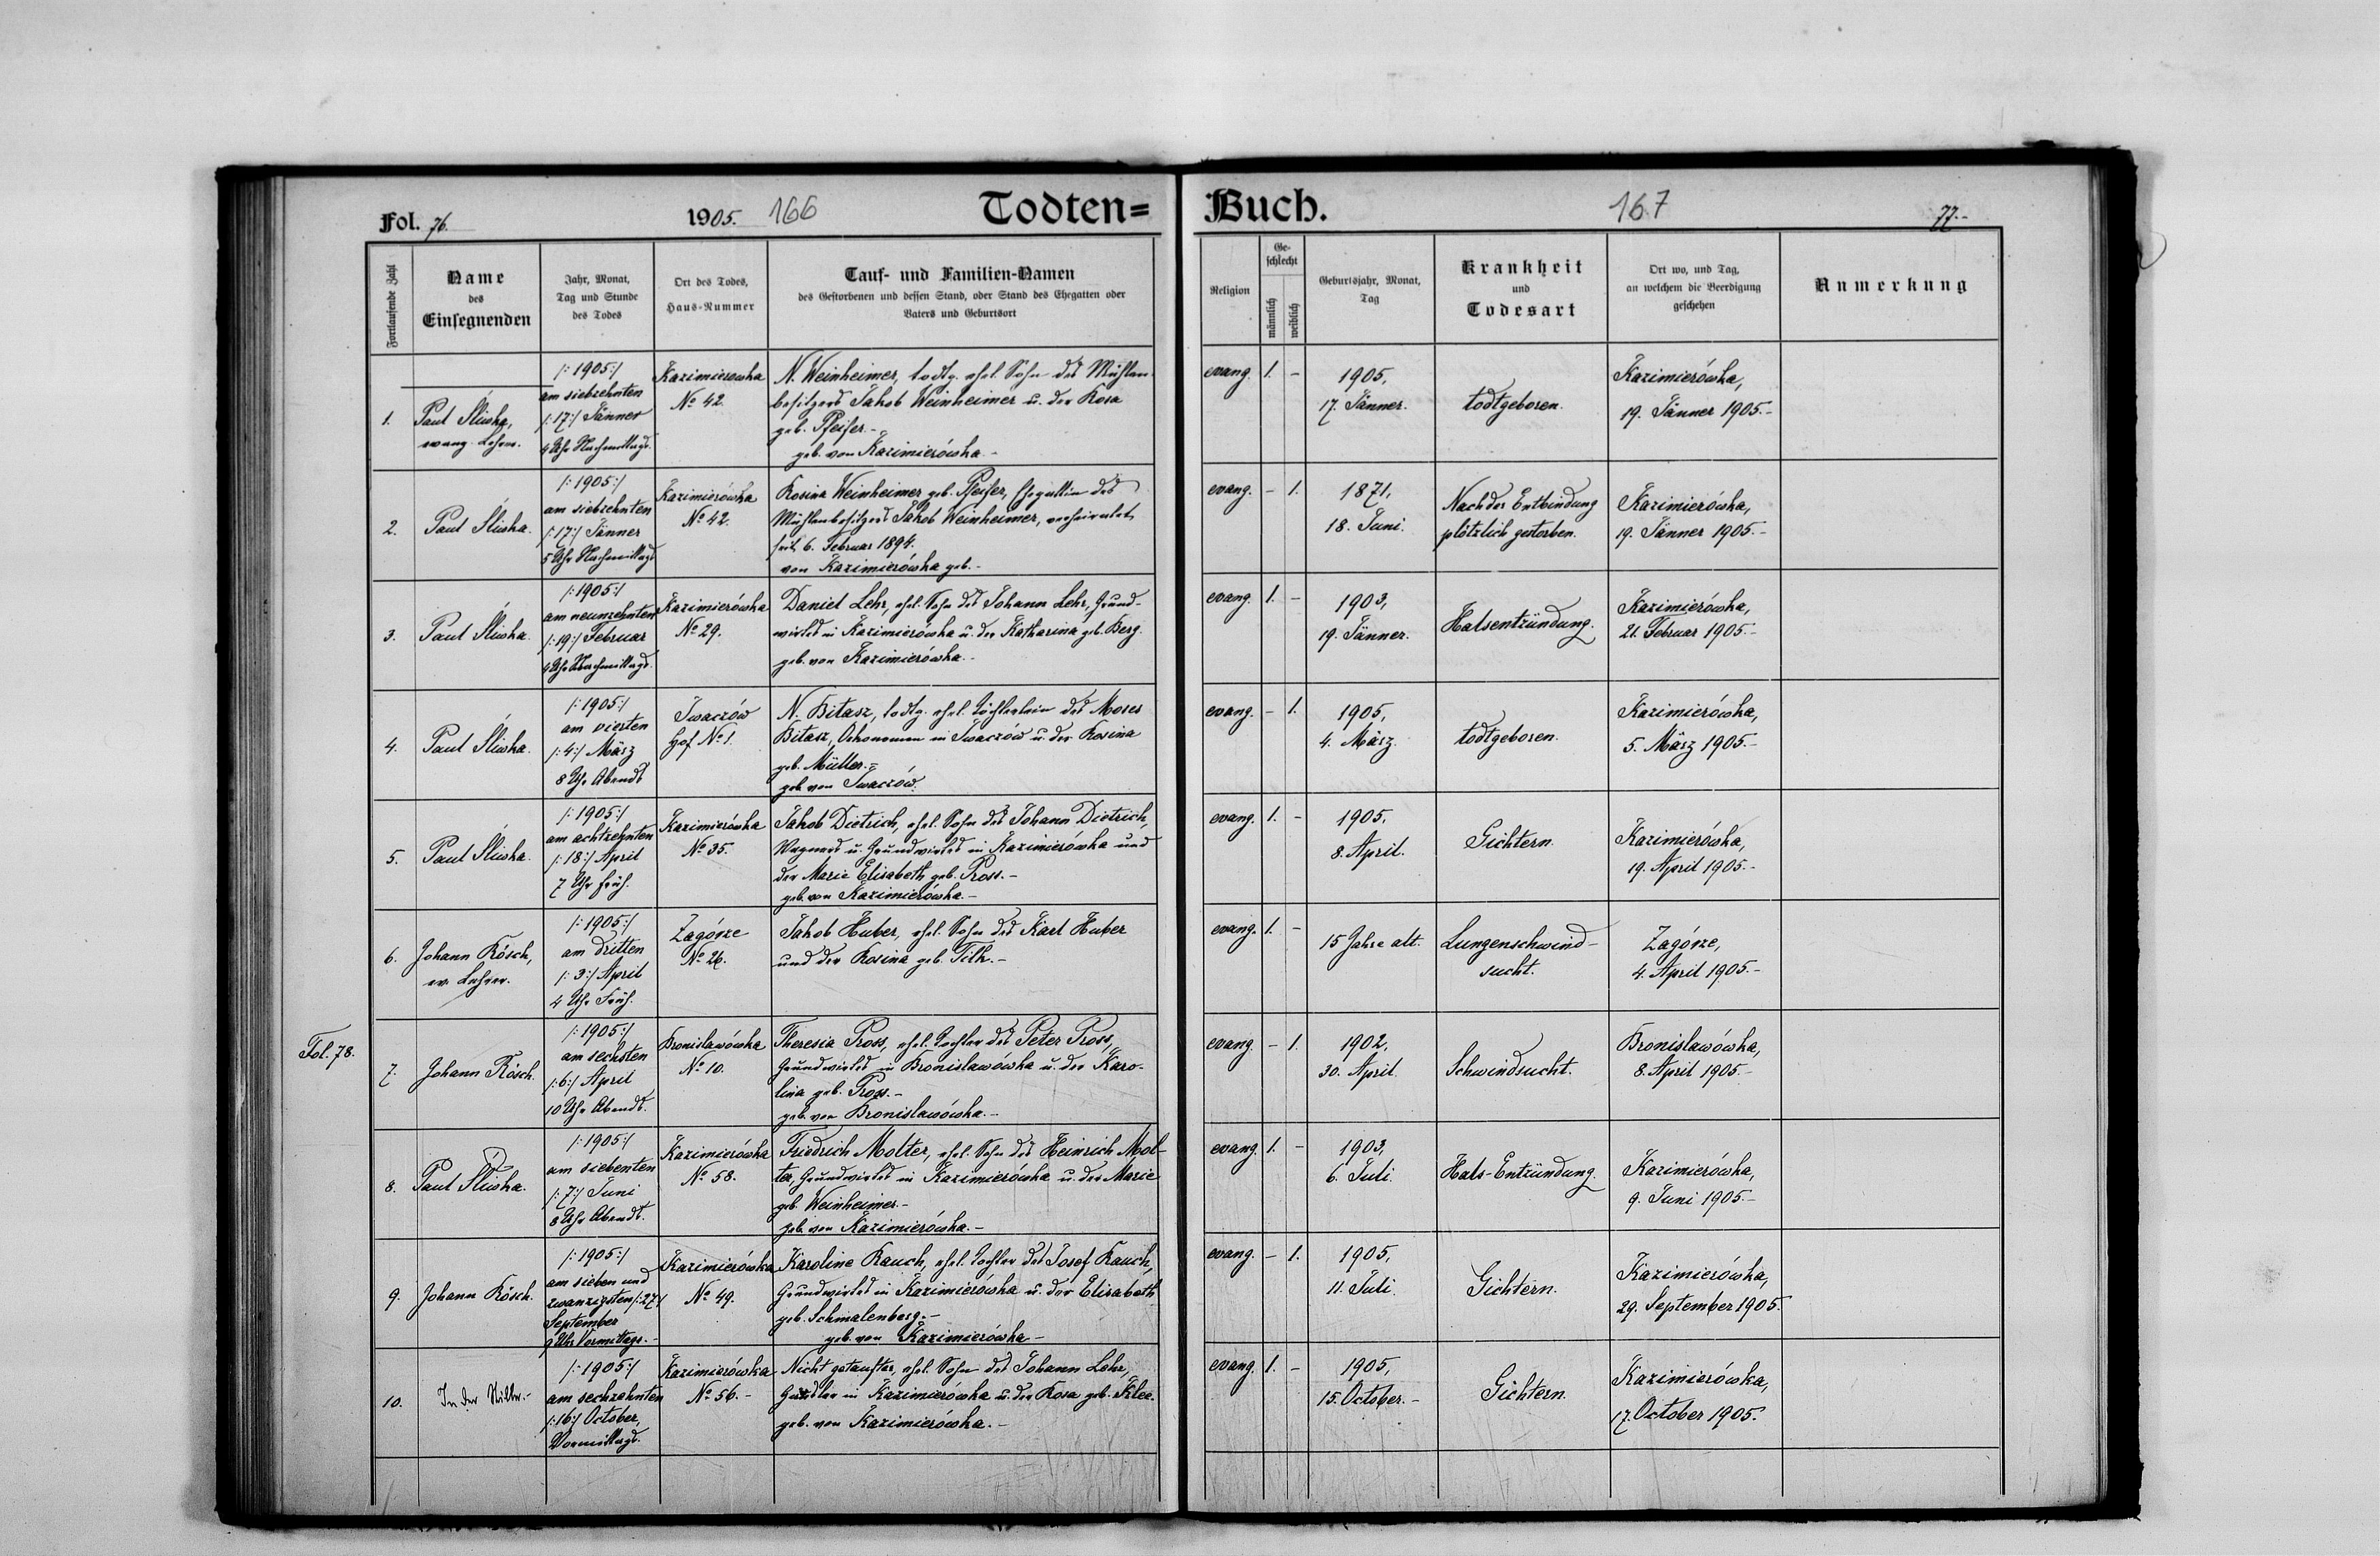 Fol. 76.
1905. 166
Todten=
Buch.
167
77.-
Fortlaufende Zahl
Name
des
Einsegnenden
Jahr, Monat,
Tag und Stunde
des Todes
Ort des Todes,
Haus-Nummer
Tauf- und Familien-Namen
des Gestorbenen und dessen Stand, oder Stand des Ehegatten oder
Vaters und Geburtsort
Religion
Ge-
schlecht
männlich
weiblich
Geburtsjahr, Monat,
Tag
Krankheit
und
Todesart
Ort wo, und Tag,
an welchem die Beerdigung
geschehen
Anmerkung
1.
Paul Śliwka,
evang. Lehrer.
/:1905:/
am siebzehnten
/:17:/ Jänner
4 Uhr Nachmittags.
Kazimierowka
No 42.
N. Weinheimer, todtg. ehel. Sohn des Mühlen-
besitzers Jakob Weinheimer u. der Rosa
geb. Pfeifer.-
geb. von Kazimierówka.-
evang. 1. -
1905,
17. Jänner.
todtgeboren.
Kazimierówka,
19. Jänner 1905.-
2.
Paul Śliwka.
/:1905:/
am siebzehnten
/:17:/ Jänner
5 Uhr Nachmittags
Kazimierówka
No 42.
Rosina Weinheimer geb. Pfeifer, Ehegattin des
Mühlenbesitzers Jakob Weinheimer, verheiratet
seit 6. Februar 1894.
von Kazimierówka geb.-
evang. - 1.
1871,
18. Juni.
Nach der Entbindung
plötzlich gestorben.
Kazimierówka,
19. Jänner 1905.-
3.
Paul Śliwka.
/:1905:/
am neunzehnten
/:19:/ Februar
4 Uhr Nachmittags.
Kazimierówka
No 29.
Daniel Lehr, ehel. Sohn des Johann Lehr, Grund-
wirtes in Kazimierówka u. der Katharina geb. Berg.
geb. von Kazimierówka.-
evang. 1. -
1903,
19. Jänner.
Halsentzündung.
Kazimierówka,
21. Februar 1905.-
4.
Paul Śliwka.
/:1905:/
am vierten
/:4:/ März
8 Uhr Abends
Iwaczów
Hof No 1.
N. Bitasz, todtg. ehel. Töchterlein des Moses
Bitasz, Oekonomen in Iwaczów u. der Rosina
geb. Müller.=
geb. von Iwaczów.
evang. - 1.
1905,
4. März.
todtgeboren.
Kazimierówka,
5. März 1905.-
5.
Paul Śliwka.
/:1905:/
am achtzehnten
/:18:/ April
7 Uhr früh.
Kazimierówka
No 35.
Jakob Dietrich, ehel. Sohn des Johann Dietrich,
Wagners u. Grundwirtes in Kazimierówka und
der Marie Elisabeth geb. Pross.-
geb. von Kazimierówka.-
evang. 1. -
1905,
8. April.
Gichtern.
Kazimierówka,
19. April 1905.-
6.
Johann Rösch,
ev. Lehrer.
/:1905:/
am dritten
/:3:/ April
4 Uhr Früh.
Zagórze
No 26.
Jakob Huber, ehel. Sohn des Karl Huber
und der Rosina geb. Filh.-
evang. 1. -
15 Jahre alt.
Lungenschwind-
sucht.
Zagórze,
4. April 1905.-
Fol. 78.
7.
Johann Rösch.
/:1905:/
am sechsten
/:6:/ April
10 Uhr Abends.
Bronislawówka
No 10.
Theresia Pross, ehel. Tochter des Peter Pross,
Grundwirtes in Bronislawówka u. der Karo-
lina geb. Pross.-
geb. von Bronislawówka.-
evang. - 1.
1902,
30. April.
Schwindsucht.
Bronislawówka,
8. April 1905.-
8.
Paul Śliwka.
/:1905:/
am siebenten
/:7:/ Juni
8 Uhr Abends.
Kazimierówka
No 58.
Friedrich Molter, ehel. Sohn des Heinrich Mol-
ter, Grundwirtes in Kazimierówka u. der Marie
geb. Weinheimer.-
geb. von Kazimierówka.-
evang. 1. -
1903,
6. Juli.
Hals-Entzündung.
Kazimierówka,
9. Juni 1905.-
9.
Johann Rösch.
/:1905:/
am sieben und
zwanzigsten /:27:/
September
9 Uhr Vormittags.-
Kazimierówka
No 49.
Karoline Rauch, ehel. Tochter des Josef Rauch,
Grundwirtes in Kazimierówka u. der Elisabeth
geb. Schmalenberg.-
geb. von Kazimierówka-
evang. - 1.
1905,
11. Juli.
Gichtern.
Kazimierówka,
29. September 1905.
10.
In der Stille.-
/:1905:/
am sechzehnten
/:16:/ October,
Vormittags.
Kazimierówka
No 56.-
Nicht getaufter, ehel. Sohn des Johann Lehr,
in Kazimierówka u. der Rosa geb. Klee.
geb. von Kazimierówka.-
evang. 1. -
1905,
15. October.-
Gichtern.
Kazimierówka,
17. October 1905.